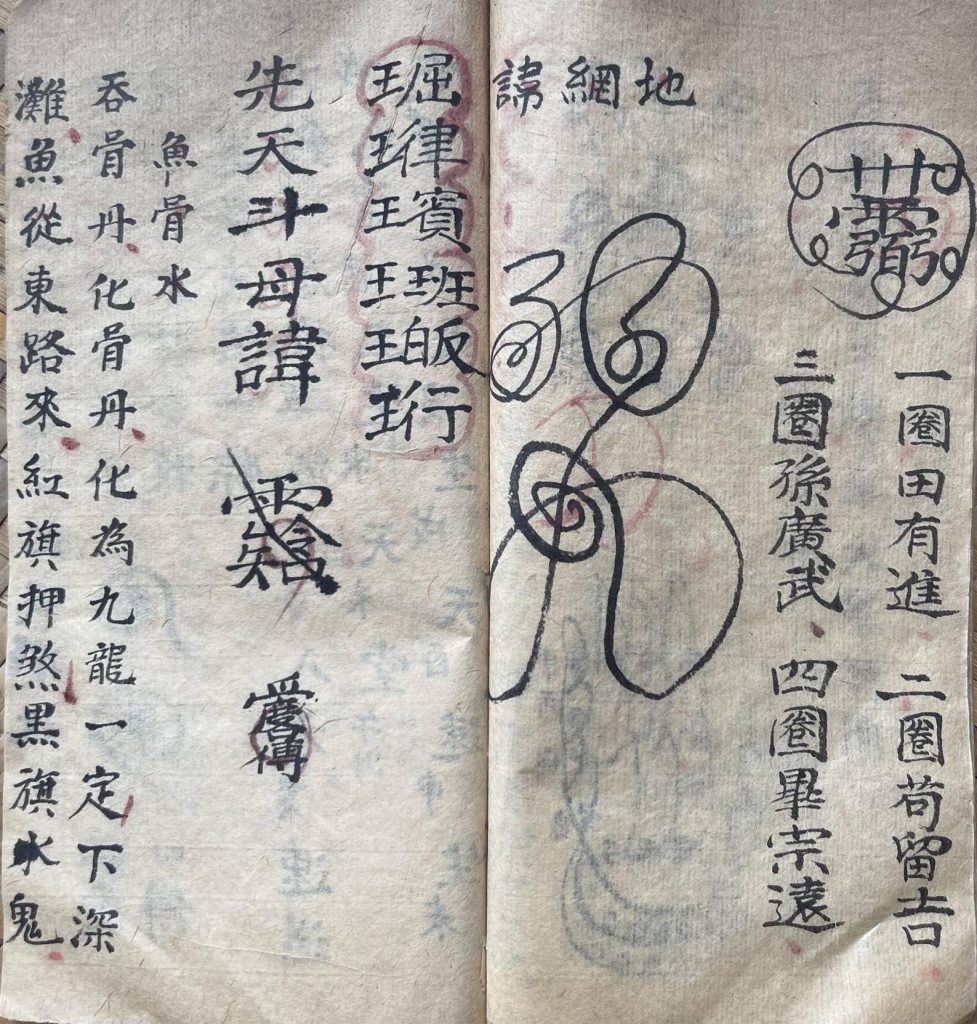 地網諱
一圈田有進 二圈苟留吉
三圈孫廣武、四圈畢宗遠
先天斗母諱
魚骨水
吞骨丹、化骨丹、化為九龍一定下深
灘魚從東路來、紅旗押煞黑旗水鬼